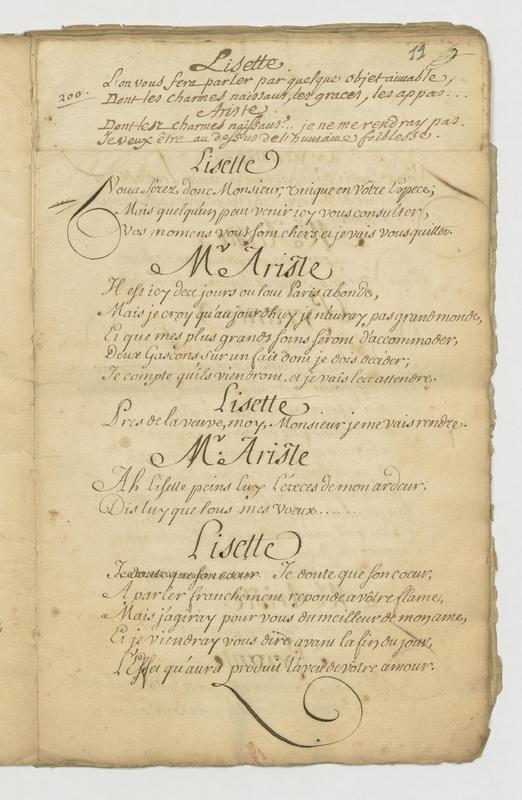 19
Lisette
L'on vous fera parler par quelque objet aimable,
200.
Dont les charmes naissans, les graces, les appas...
Ariste.
Dont les charmes naissans?.. je ne me rendray pas.
Je veux être au dessus de l'humaine foiblesse.
Lisette
Vous serez donc Monsieur, unique en vôtre Espece;
Mais quelqu'un peut venir icy vous consulter,
Vos momens vous sont chers, et je vais vous quitter.
Mr. Ariste
Il est icy des jours ou tout Paris abonde,
Mais je croy qu'aujourdhuy je n'auray pas grand monde,
Et que mes plus grands soins seront d'accommoder,
Deux Gascons sur un fait dont je dois decider;
Je compte qu'ils viendront, et je vais les attendre.
Lisette
Pres de la veuve, moy, Monsieur je me vais rendre.
Mr. Ariste
Ah Lisette peins luy l'éxces de mon ardeur,
Dis luy que tous mes voeux......
Lisette
Je doute que son coeur. Je doute que son coeur,
A parler franchement reponde a vôtre flame,
Mais j'agiray pour vous du meilleur de mon ame,
Et je viendray vous dire avant la fin du jour,
L'Effet qu'aura produit l'aveu de vôtre amour.